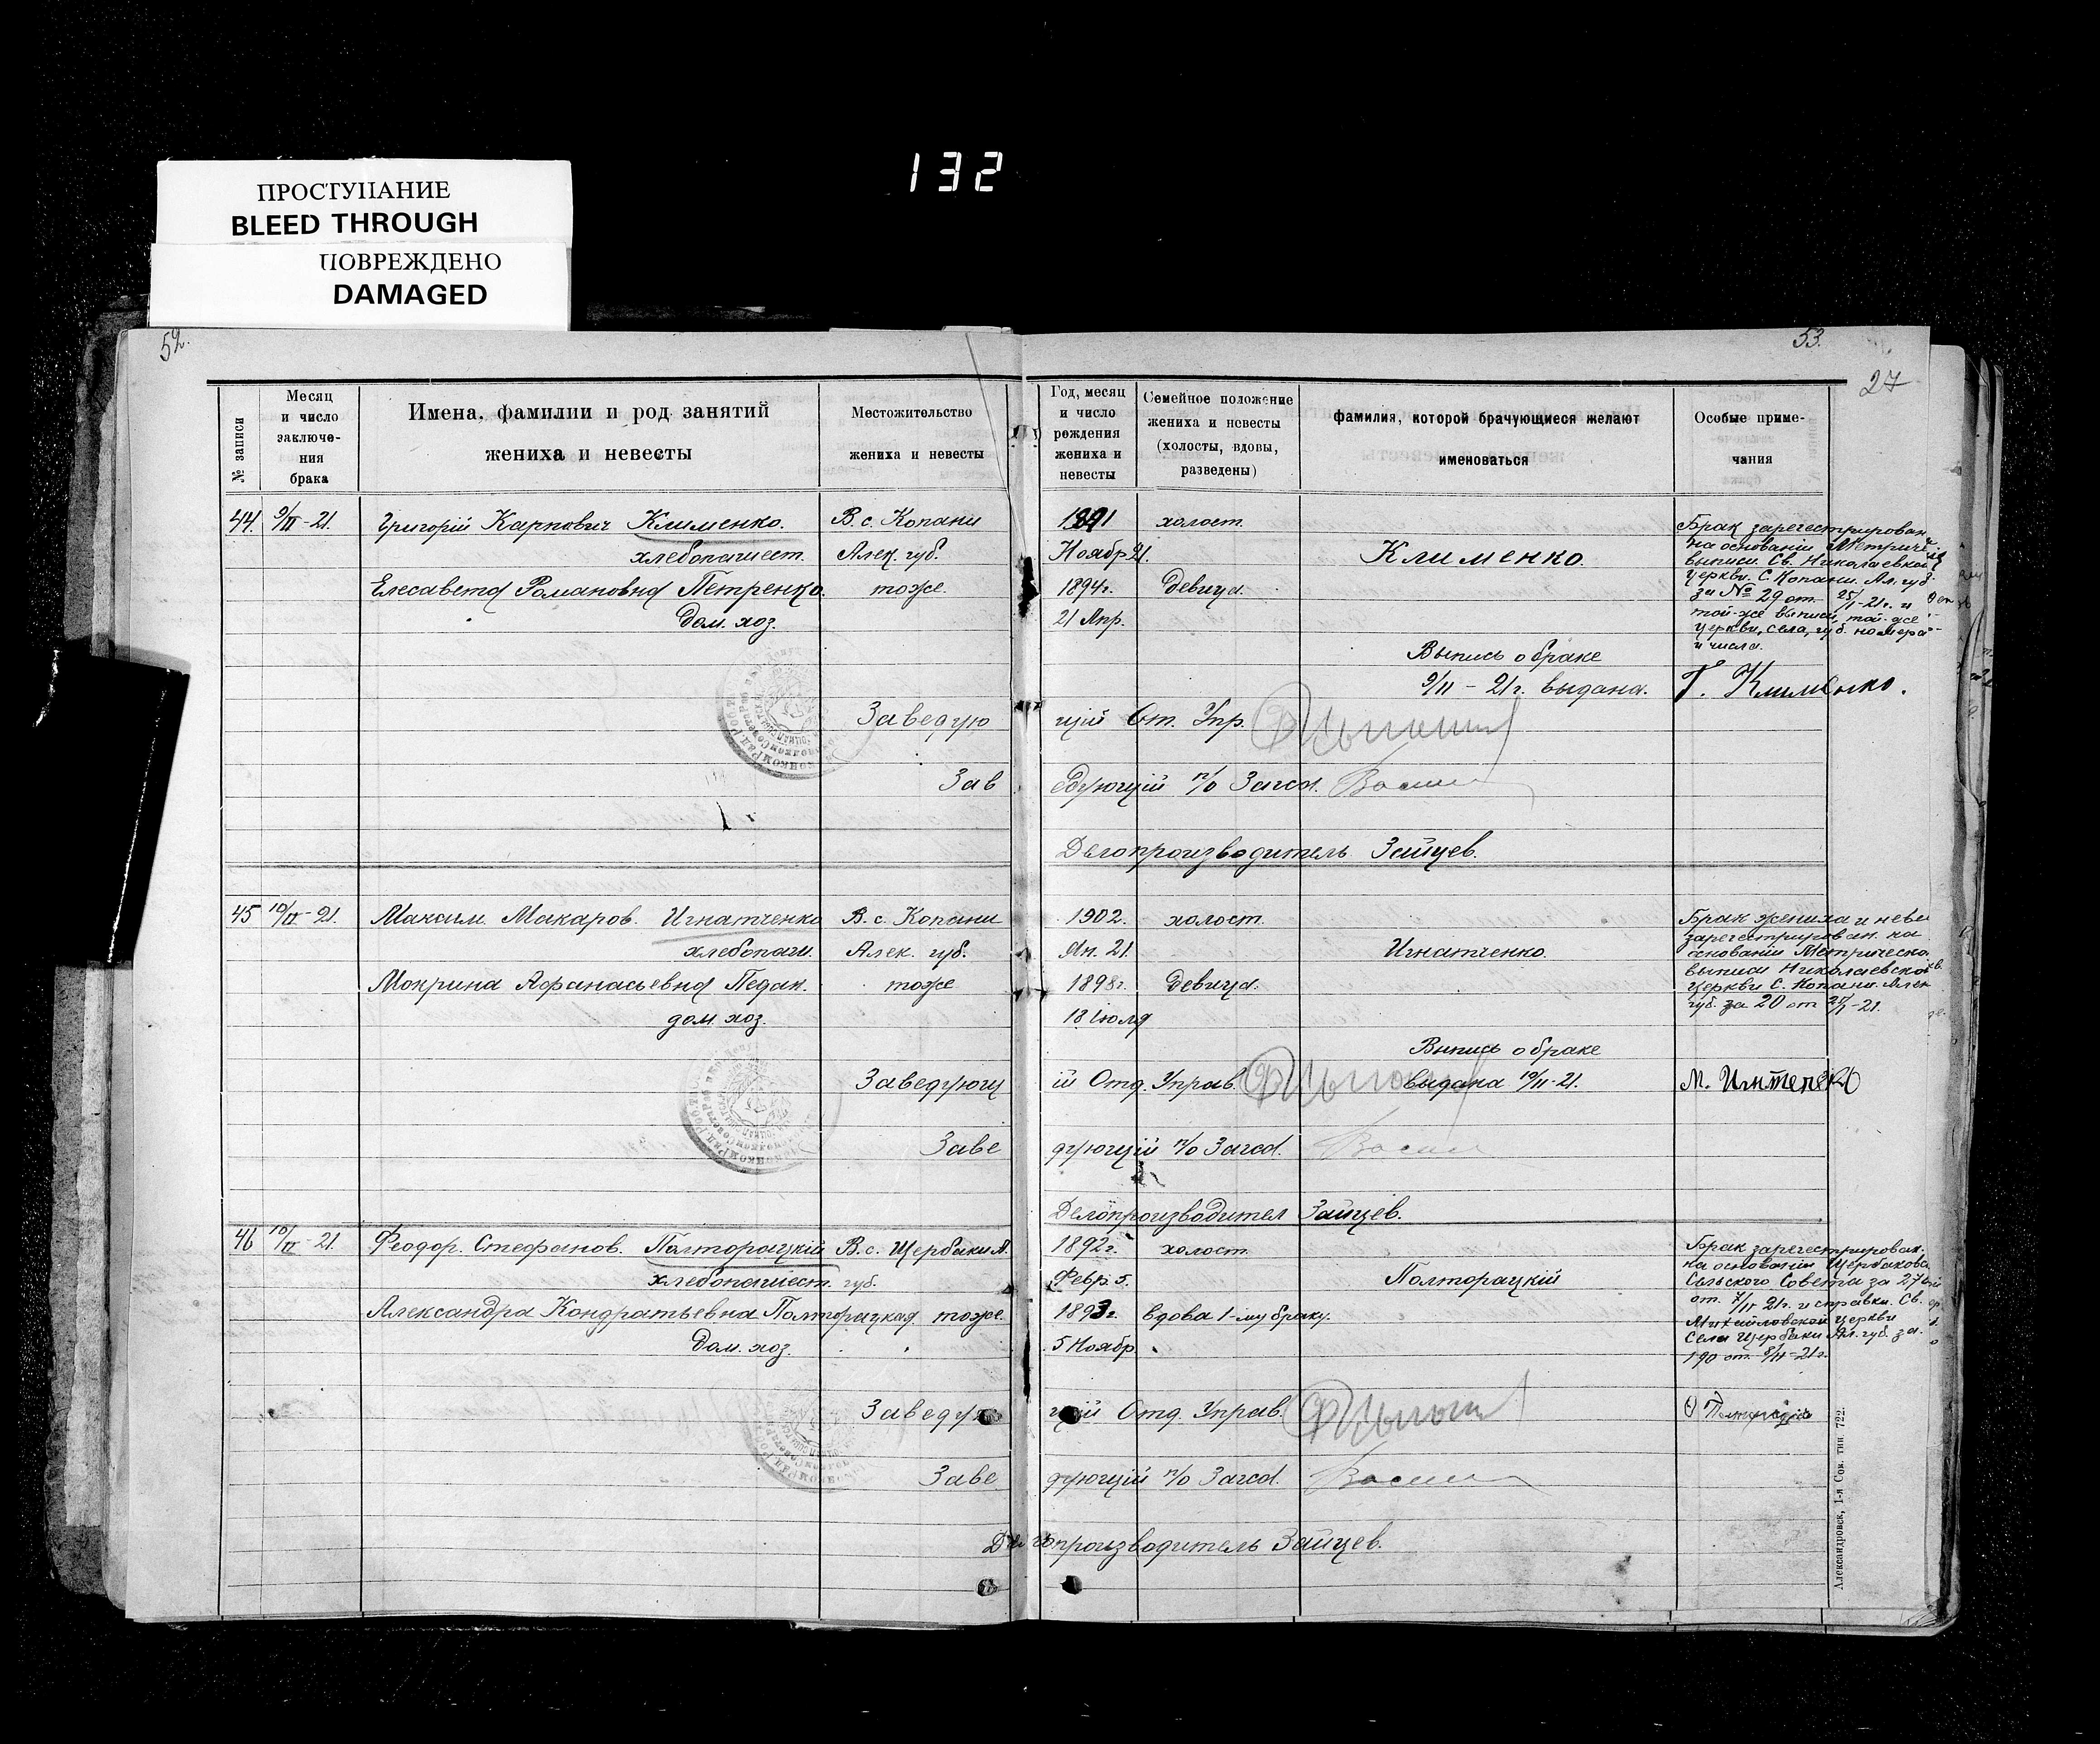 132
ПРОСТУПАНИЕ
BLEED THROUGH
ПОВРЕЖДЕНО
DAMAGED
52.
53.
27
№ записи
Месяц и число заключе-ния брака
Имена, фамилии и род занятий жениха и невесты
Местожительство жениха и невесты
Год, месяц и число рождения жениха и невесты
Семейное положение жениха и невесты (холосты, вдовы, разведены)
фамилия, которой брачующиеся желают именоваться
Особые приме-чания
44. 9/II-21. Григорій Карпович Клименко. В. с. Копани 1891 холост.
хлебопашест. Алек. губ. Ноябр 21. Клименко.
Елисавета Романовна Петренко. тоже. 1894г. девица.
Дом. хоз. 21 Апр.
Брак зарегестрирован
на основаніи Метриче
выписи Св. Николаевской
церкви С. Копани. Ал. губ.
за № 29 от 25/I-21г. и
той-же выписи, той-же
церкви, села, губ. номера
и числа.
Выпись о браке
9/II - 21г. выдана. Г. Клименко.
Заведующій От. Упр.
Заведующій п/о Загса.
Делопроизводитель Зайцев.
45 10/II-21. Максим Макаров. Игнатченко В. с. Копани 1902. холост.
хлебопаш. Алек. губ. Ян. 21. Игнатченко.
Мокрина Афанасьевна Педан. тоже 1898г. девица.
дом. хоз. 18 Июля
Брак жениха и неве
зарегестрирован. на
основаніи Метрическо
выписи Николаевской
церкви С. Копани. Алек
губ. за 20 от 25/I-21.
Выпись о браке
Заведующій Отд. Управ. выдана 10/II-21.
Заведующій п/о Загса.
Делопроизводител Зайцев.
46 10/II-21. Феодор. Стефанов. Полторацкій В. с. Щербаки А. 1892г. холост.
хлебопашест. губ. Февр. 5. Полторацкій
Александра Кондратьевна Полторацкая. тоже. 1893г. вдова 1-му браку.
Дом. хоз. 5 Ноябр.
Брак зарегестрирован.
на основаніи Щербаков
Сельского Совета за 27
от. 7/II 21г. и справки. Св.
Михайловской церкви
Села Щербаки Ал. губ. за.
190 от. 8/II-21г.
Заведующій Отд. Управ.
Заведующій п/о Загса.
Делопроизводитель Зайцев.
Александровск, 1-я Сов. тип. 722.